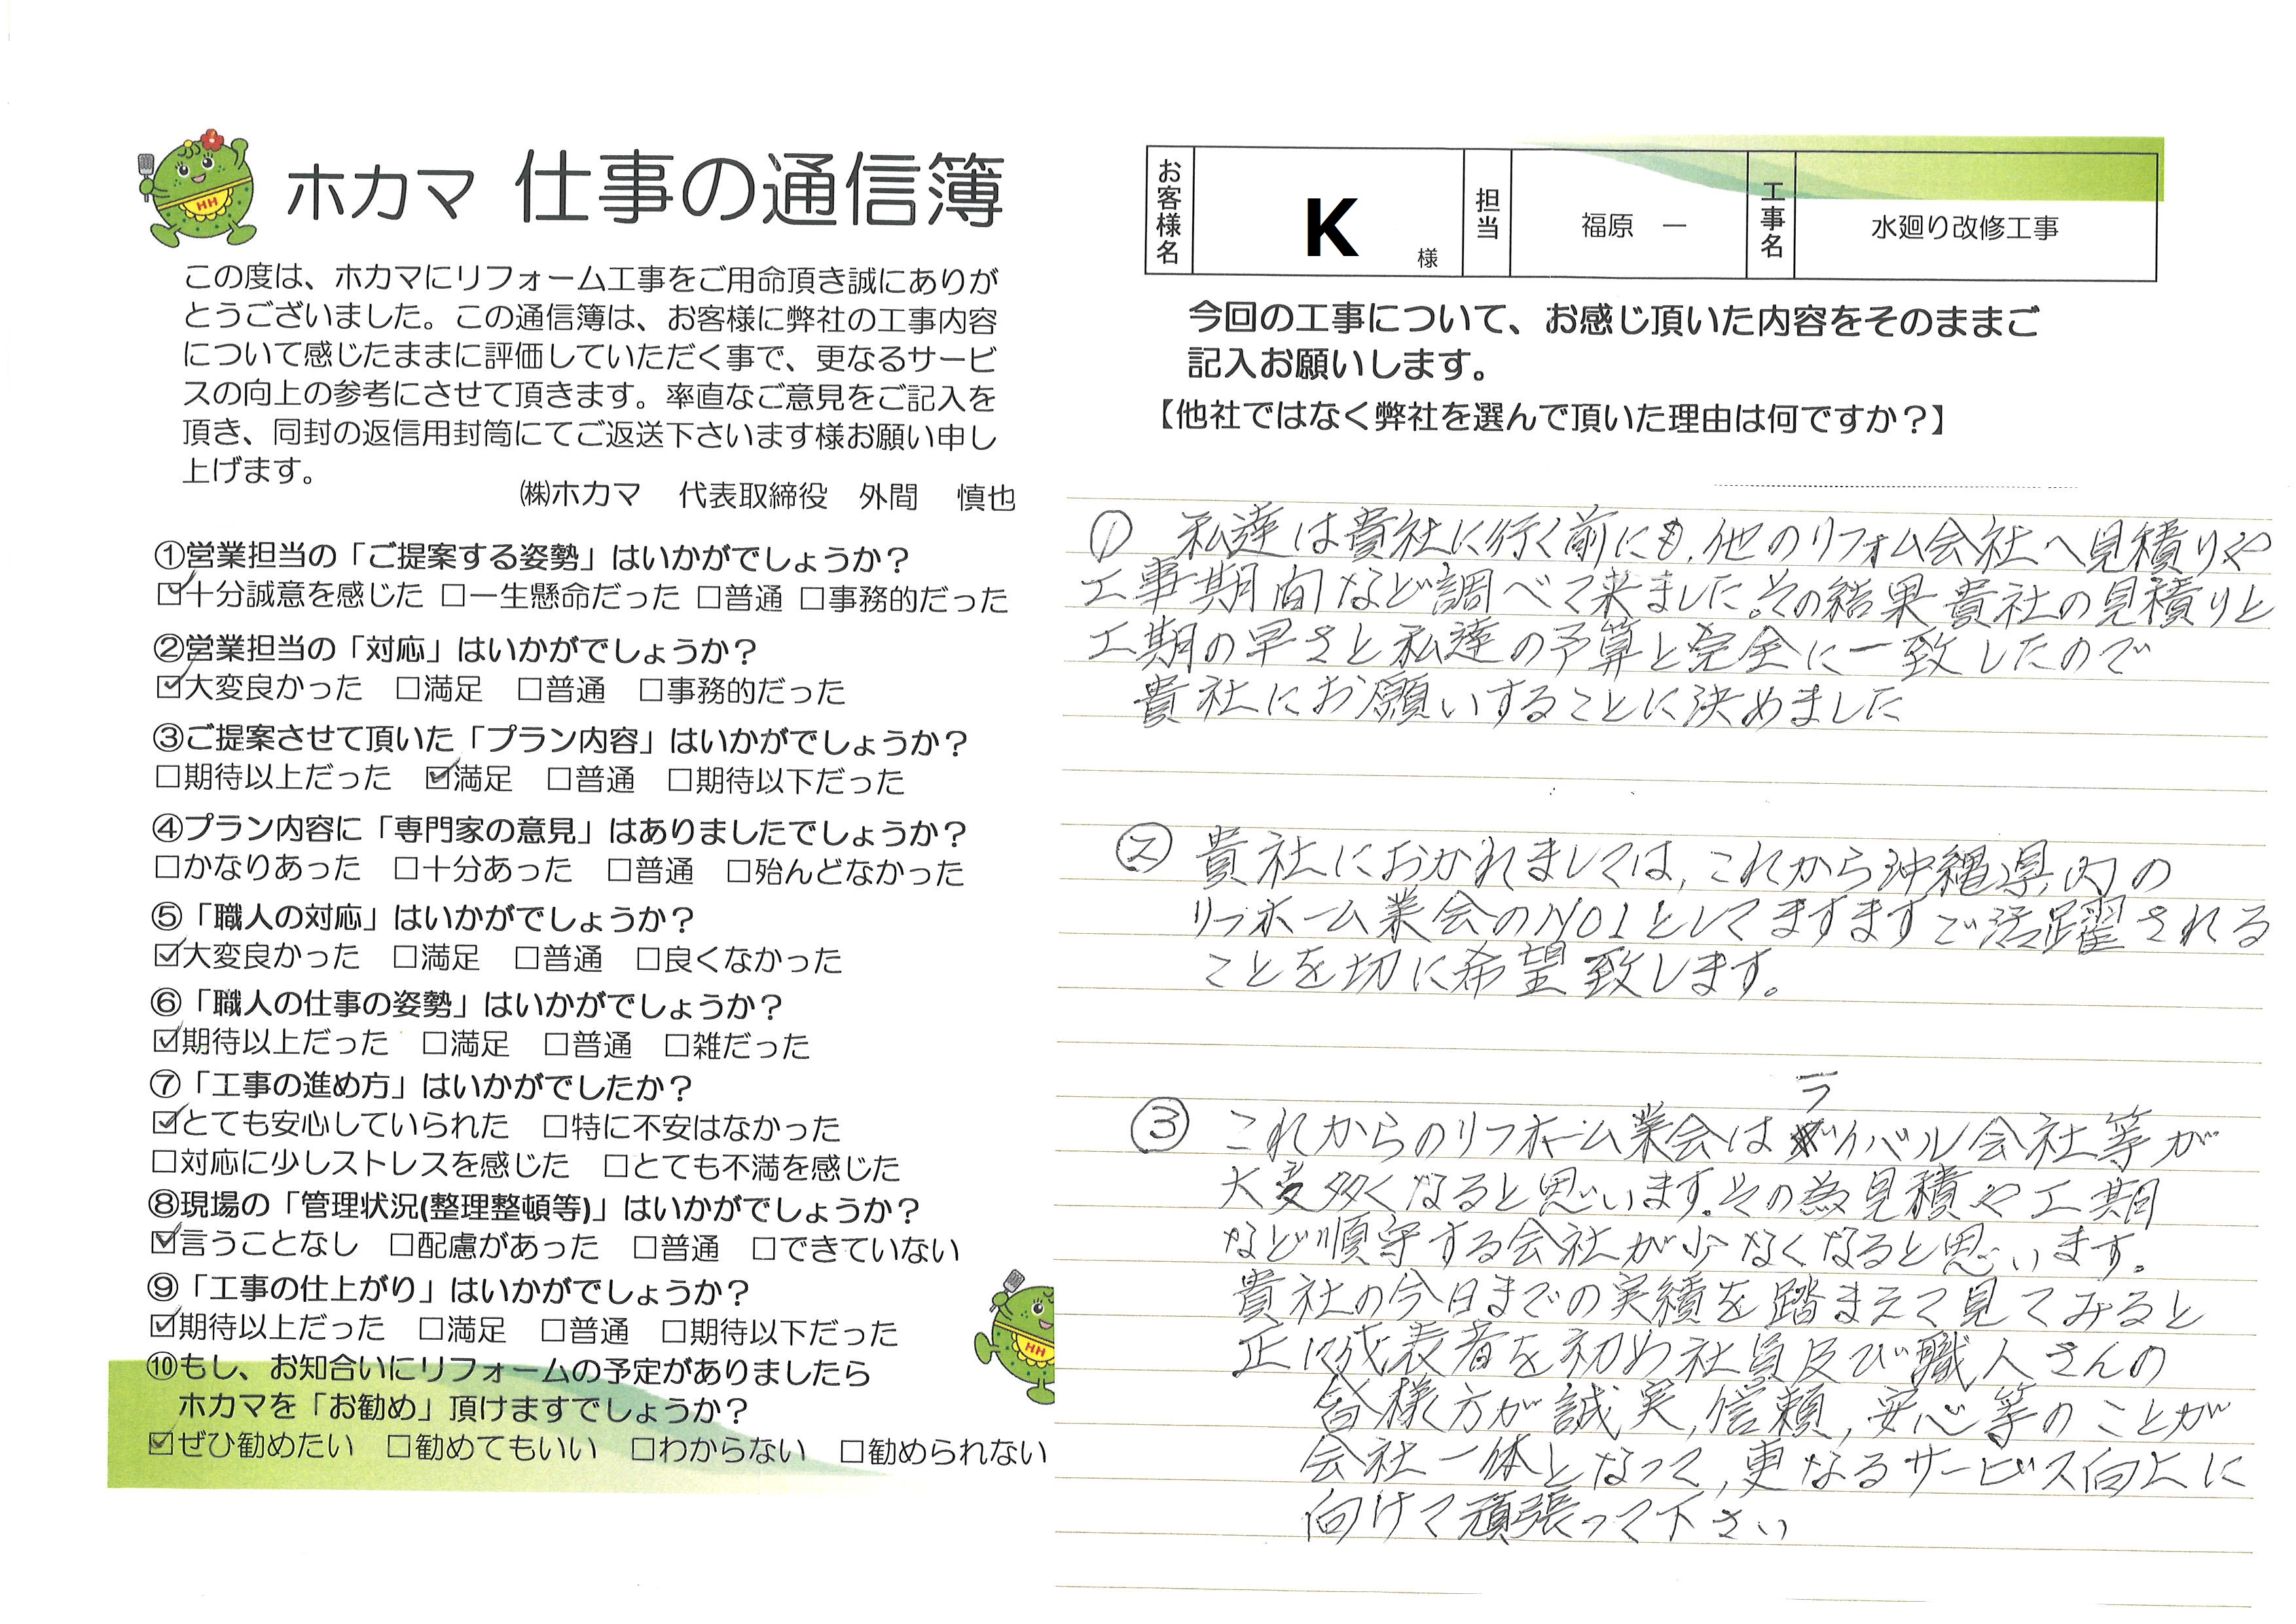 ホカマ 仕事の通信簿
この度は、ホカマにリフォーム工事をご用命頂き誠にありが
とうございました。この通信簿は、お客様に弊社の工事内容
について感じたままに評価していただく事で、更なるサービ
スの向上の参考にさせて頂きます。率直なご意見をご記入を
頂き、同封の返信用封筒にてご返送下さいます様お願い申し
上げます。
㈱ホカマ 代表取締役 外間 慎也
①営業担当の「ご提案する姿勢」はいかがでしょうか？
☑十分誠意を感じた □一生懸命だった □普通 □事務的だった
②営業担当の「対応」はいかがでしょうか？
☑大変良かった □満足 □普通 □事務的だった
③ご提案させて頂いた「プラン内容」はいかがでしょうか？
□期待以上だった ☑満足 □普通 □期待以下だった
④プラン内容に「専門家の意見」はありましたでしょうか？
□かなりあった □十分あった □普通 □殆んどなかった
⑤「職人の対応」はいかがでしょうか？
☑大変良かった □満足 □普通 □良くなかった
⑥「職人の仕事の姿勢」はいかがでしょうか？
☑期待以上だった □満足 □普通 □雑だった
⑦「工事の進め方」はいかがでしたか？
☑とても安心していられた □特に不安はなかった
□対応に少しストレスを感じた □とても不満を感じた
⑧現場の「管理状況(整理整頓等)」はいかがでしょうか？
☑言うことなし □配慮があった □普通 □できていない
⑨「工事の仕上がり」はいかがでしょうか？
☑期待以上だった □満足 □普通 □期待以下だった
⑩もし、お知合いにリフォームの予定がありましたら
ホカマを「お勧め」頂けますでしょうか？
☑ぜひ勧めたい □勧めてもいい □わからない □勧められない
HH
HH
お客様名 K 様 担当 福原 一 工事名 水廻り改修工事
今回の工事について、お感じ頂いた内容をそのままご
記入お願いします。
【他社ではなく弊社を選んで頂いた理由は何ですか？】
① 私達は貴社に行く前にも、他のリフォム会社へ見積りや
工事期間など調べて来ました。その結果貴社の見積りと
工期の早さと私達の予算と完全に一致したので
貴社にお願いすることに決めました
② 貴社におかれましては、これから沖縄県内の
リフホーム業会のNO1としてますますご活躍される
ことを切に希望致します。
③ これからのリフホーム業会はライバル会社等が
大変多くなると思います。その為見積や工期
など順守する会社が少なくなると思います。
貴社の今日までの実績を踏まえて見てみると
正に代表者を初め社員及び職人さんの
皆様方が誠実、信頼、安心等のことが
会社一体となって、更なるサービス向上に
向けて頑張って下さい